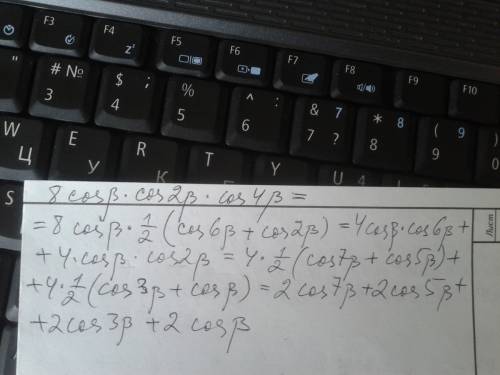 F3
F4
F5
F6
F7
F8
F9
F10
z
"
# №
3
$ ;
4
%
5
^ :
6
& 7
7 ?
* 8
8
( 9
9
W
Ц
E
У
R
К
T
Y
U 4
S
8 cosβ · cos2β · cos4β =
= 8 cosβ · 1/2 (cos6β + cos2β) = 4cosβ · cos6β +
+ 4 · cosβ · cos2β = 4 · 1/2 (cos7β + cos5β) +
+ 4 · 1/2 (cos3β + cosβ) = 2 cos7β + 2 cos5β +
+ 2 cos3β + 2 cosβ
Лист